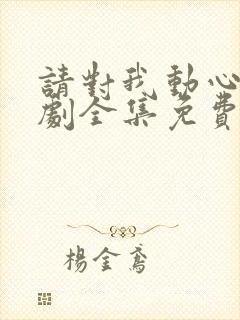 請對我動心
劇全集免費
楊金鳶